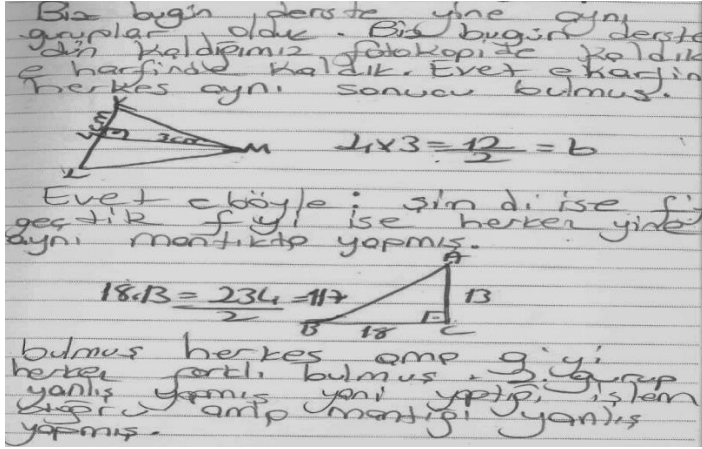 Biz bugün derste yine aynı
guruplar olduk. Biz bugün derste
dün kaldığımız fotokopide kaldık
e harfinde kaldık. Evet e harfin
herkes aynı sonucu bulmuş.
K
4cm
3cm
M
L
4x3=12/2=6
Evet e böyle; şimdi ise f'y
geçtik f yi ise herkes yine
aynı mantıkta yapmış.
A
18.13=234/2=117
13
B 18 C
bulmuş herkes ama g'yi
herkes farklı bulmuş. 3. gurup
yanlış yapmış yani yaptığı işlem
doğru ama mantığı yanlış
yapmış.